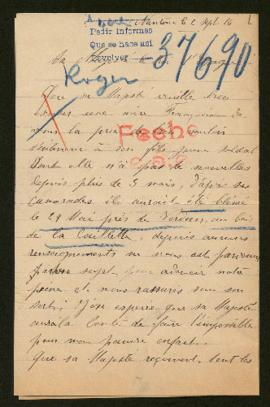 Nanterre le 2 Sept 16
Pedir informes
Que se hace así
37690
Sa Majesté
Roger
Que sa Majesté veuille bien
Fecho
soldat
dont elle n'a pas de nouvelles
depuis plus de 3 mois, d'après ses
camarades il aurait été blessé
le 29 Mai près de Verdun, au bois
de la Caillette, depuis aucuns
renseignements ne nous est parvenu
à son sujet pour adoucir notre
peine et nous rassurer sur son
sort. J'ose espérer que sa Majesté
aura la bonté de faire l'impossible
pour mon pauvre enfant.
Que sa Majesté reçoivent tous les